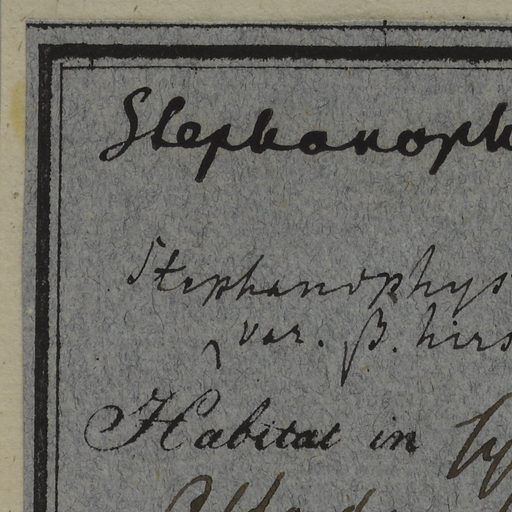 Stephanoph
Stephanophys
var. β. hirs
Habitat in sy